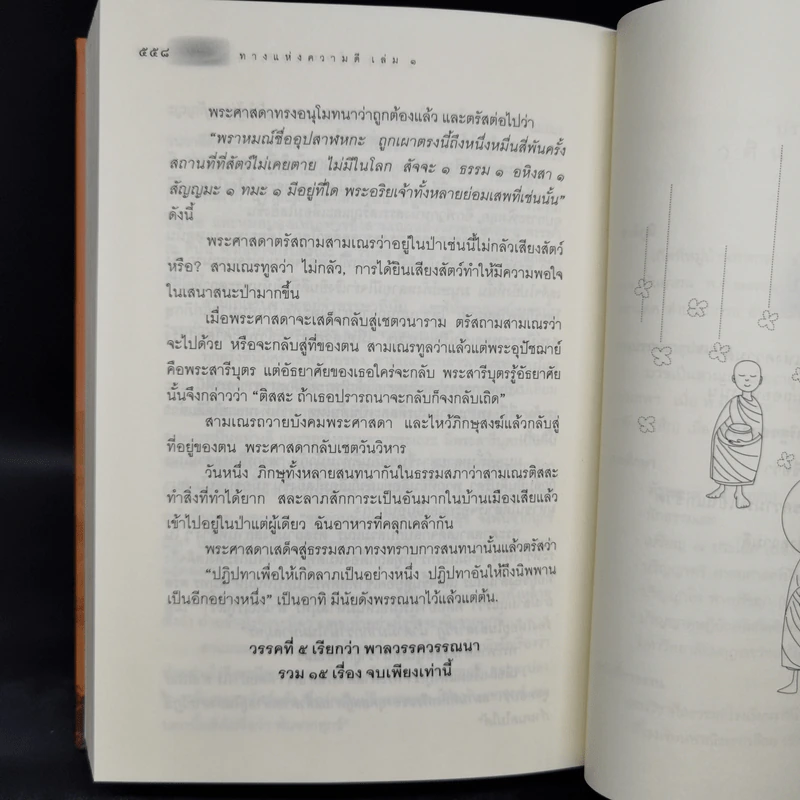 ๕๕๘ ทางแห่งความดี เล่ม ๑
พระศาสดาทรงอนุโมทนาว่าถูกต้องแล้ว และตรัสต่อไปว่า
“พราหมณ์ชื่ออุปสาฬหกะ ถูกเผาตรงนี้ถึงหนึ่งหมื่นสี่พันครั้ง
สถานที่ที่สัตว์ไม่เคยตาย ไม่มีในโลก สัจจะ ๑ ธรรม ๑ อหิงสา ๑
สัญญมะ ๑ ทมะ ๑ มีอยู่ที่ใด พระอริยเจ้าทั้งหลายย่อมเสพที่เช่นนั้น”
ดังนี้
พระศาสดาตรัสถามสามเณรว่าอยู่ในป่าเช่นนี้ไม่กลัวเสียงสัตว์
หรือ? สามเณรทูลว่า ไม่กลัว, การได้ยินเสียงสัตว์ทำให้มีความพอใจ
ในเสนาสนะป่ามากขึ้น
เมื่อพระศาสดาจะเสด็จกลับสู่เชตวนาราม ตรัสถามสามเณรว่า
จะไปด้วย หรือจะกลับสู่ที่ของตน สามเณรทูลว่าแล้วแต่พระอุปัชฌาย์
คือพระสารีบุตร แต่อัธยาศัยของเธอใคร่จะกลับ พระสารีบุตรรู้อัธยาศัย
นั้นจึงกล่าวว่า “ติสสะ ถ้าเธอปรารถนาจะกลับก็จงกลับเถิด”
สามเณรถวายบังคมพระศาสดา และไหว้ภิกษุสงฆ์แล้วกลับสู่
ที่อยู่ของตน พระศาสดากลับเชตวันวิหาร
วันหนึ่ง ภิกษุทั้งหลายสนทนากันในธรรมสภาว่าสามเณรติสสะ
ทำสิ่งที่ทำได้ยาก สละลาภสักการะเป็นอันมากในบ้านเมืองเสียแล้ว
เข้าไปอยู่ในป่าแต่ผู้เดียว ฉันอาหารที่คลุกเคล้ากัน
พระศาสดาเสด็จสู่ธรรมสภา ทรงทราบการสนทนานั้นแล้วตรัสว่า
“ปฏิปทาเพื่อให้เกิดลาภเป็นอย่างหนึ่ง ปฏิปทาอันให้ถึงนิพพาน
เป็นอีกอย่างหนึ่ง” เป็นอาทิ มีนัยดังพรรณนาไว้แล้วแต่ต้น.
วรรคที่ ๕ เรียกว่า พาลวรรควรรณนา
รวม ๑๕ เรื่อง จบเพียงเท่านี้